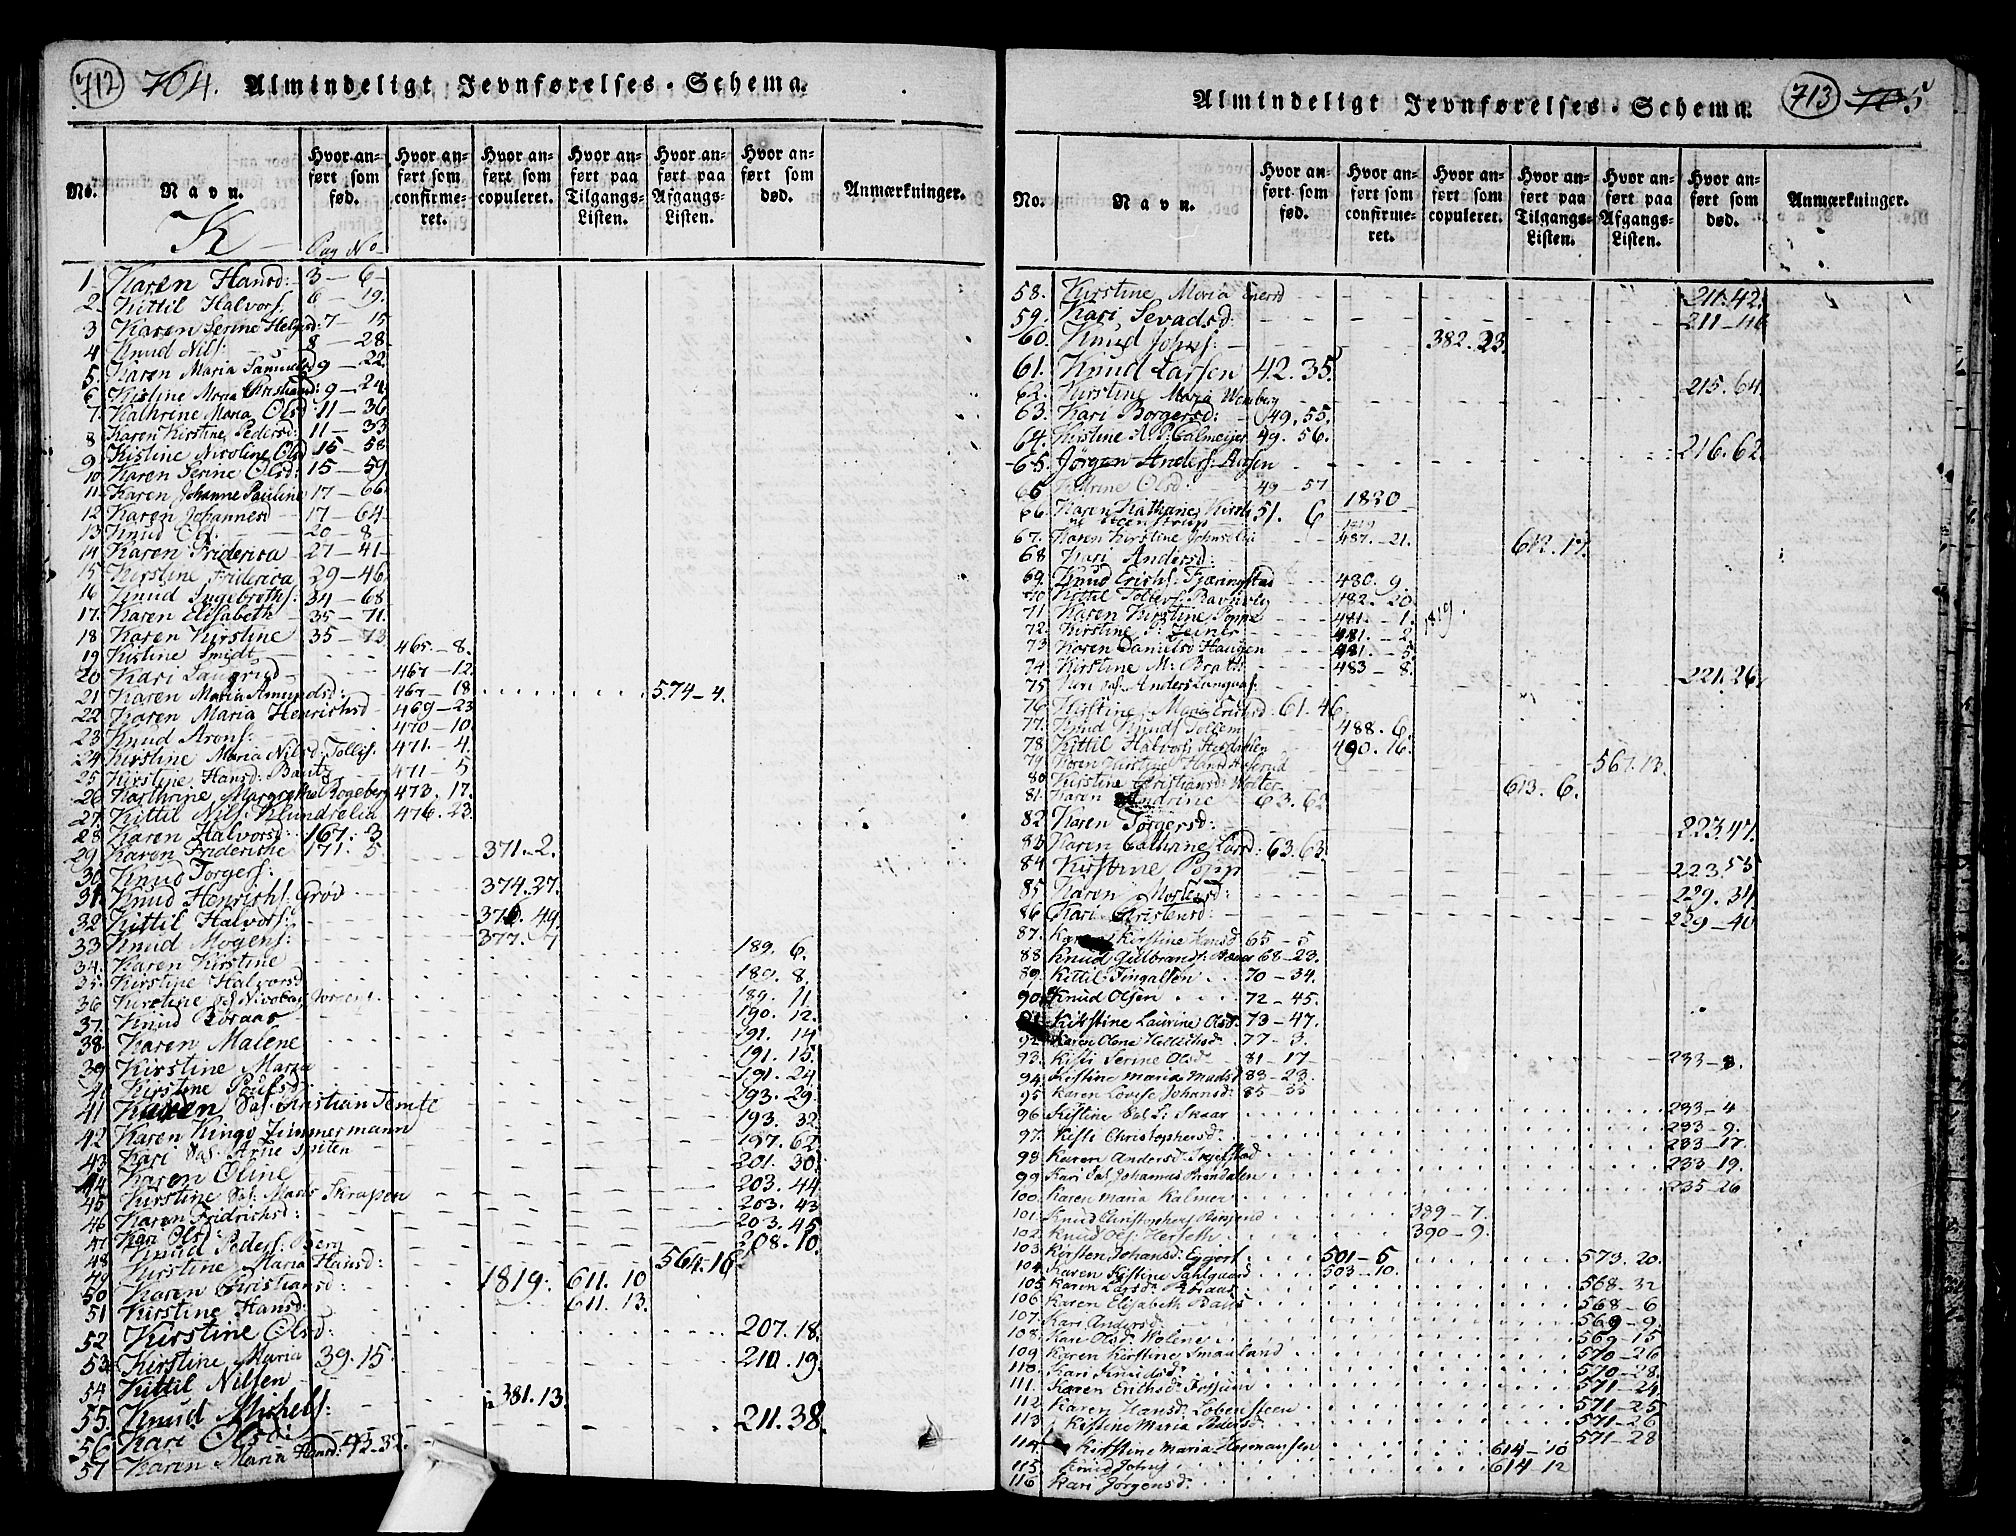 712 704. Almindeligt Jevnførelses-Schema.
No. Navn. Hvor anført som fød. Hvor anført som confirmeret. Hvor anført som copuleret. Hvor anført paa Tilgangs-Listen. Hvor anført paa Afgangs-Listen. Hvor anført som død. Anmærkninger.
K Pag No
1. Karen Hansd: 3 - 6
2. Kittil Halvors: 6 - 19.
3 Karen Serine Helgesd: 7 - 15
4 Knud Nils: 8 - 28
5. Karen Maria Samuelsd 9 - 22
6 Kistine Maria Christiansd: 9 - 24
7. Kathrine Maria Olsd 11 - 36
8 Karen Kirstine Pedersd: 11 - 33
9 Kistine Nicoline Olsd 15 - 58
10 Karen Serine Olsd: 15 - 59
11 Karen Johanne Pauline 17 - 66
12 Karen Johannesd 17 - 64
13 Knud Ols: 20 - 8
14 Karen Friderica 27 - 41
15 Kirstine Friderica 29 - 46
16 Knud Ingebreths: 34 - 68
17. Karen Elisabeth 35 - 71.
18 Karen Kirstine 35 - 73
19 Kistine Smidt 465 - 8.
20 Kari Laugrud 467 - 12
21 Karen Maria Amundsd: 467 - 18 574 - 4.
22 Karen Maria Henrichsd 469 - 23
23 Knud Arons: 470 - 10
24 Kirstine Maria Nilsd: Tollefs: 471 - 4
25 Kirstine Hansd: Bautz 471 - 5
26 Karthrine Margrethe Bogeberg 473. 17.
27 Kittil Nils: Klundrelia 476. 23
28 Karen Halvorsd: 167. 3
29 Karen Frideriche 171. 5. 371. 2.
30 Knud Torgers:
31. Knud Henrichs: Grøv 374. 27.
32 Kittil Halvors: 376. 49.
33 Knud Mogens: 377. 7 189. 6.
34. Karen Kirstine 189. 8.
35. Kirstine Halvorsd 189. 11
36 Kirstine Nicolay Jorgens: 190. 12.
37. Knud Boraas 191. 14
38 Karen Malene 191. 15.
39 Kirstine Maria 191. 24
40 Kirstine Poulsd: 193. 29.
41 Karen Das: Kristian Temte 193. 32
42 Karen Kingo Zimmermann 197. 62
43 Kari Das: Arne Spiten 201. 30.
44 Karen Oline 203. 44
45 Kirstine Das: Mads Skrapen 203. 43
46 Karen Fridrichsd: 203. 45
47 Kari Olsd: 208. 10.
48 Knud Peders: Berg 564. 16
49 Kirstine Maria Hansd: 1819: 611. 10
50 Karen Christiansd: 611. 13.
51 Kirstine Hansd: 207. 18.
52 Kirstine Olsd: 210. 19.
53 Kirstine Maria 39. 15.
54 Kittil Nilsen 381. 13.
55 Knud Michels: 211. 38.
56 Kari Olsd:
57 Karen Maria Hansd: 43 - 32.
Almindeligt Jevnførelses-Schema. 713 705
No. Navn. Hvor anført som fød. Hvor anført som confirmeret. Hvor anført som copuleret. Hvor anført paa Tilgangs-Listen. Hvor anført paa Afgangs-Listen. Hvor anført som død. Anmærkninger.
58. Kirstine Maria Enersd 211. 42.
59. Kari Sevadsd: 211 - 46
60. Knud Johns: 382. 23.
61. Knud Larsen 42. 35.
62. Kirstine Maria Wenberg 215. 64.
63. Kari Borgersd: 49. 55.
64. Kirstine A. P. Calmeijer 49. 56. 216. 62.
65. Jørgen Anders: Aasen
65 Katrine Olsd: 49 - 57
66. Karen Kathrine Kirstine Steenstrup 51. 6 1820
67. Karen Kirstine Johnsdlia 1819 487. - 21.
68 Kari Andersd: 612. 17.
69. Knud Erichs: Fjæringstad 480. 9.
70 Kittil Tollefs: Bavnvig 482. 20.
71. Karen Kirstine Poppe 481. - 1. 1819.
72. Kirstine P: Zeiner 481. - 2.
73. Karen Danielsd Haugen 481 - 5
74. Kirstine M: Brath 483 - 8. 221. 26.
75. Kari Das: Anders Langaas
76. Kirstine Maria Erichsd. 61. 46.
77. Knud Knuds Tollem 488. 6.
78. Kittil Halvors: Heidelien 490. 16.
79. Karen Kirstine Hansd Aaserud 567. 13.
80. Kirstine Christiansd: Wolter 613. 6.
81. Karen Andrine 63. 62
82. Karen Torgersd: 223 47.
83. Karen Cathrine Larsd: 63. 63.
84. Kirstine Popp 223. 55
85. Karen Mortensd: 229. 34.
86 Kari Christensd: 229 - 40.
87. Karen Kirstine Hansd 65 - 5
88 Knud Gulbrands: 68 - 23.
89. Kittil Tingalsen 70 - 34.
90. Knud Olsen 72 - 45.
91 Kirstine Laurine Olsd: 73 - 47.
92 Karen Olene Hellichsd: 77 - 3.
93. Kisti Serine Olsd: 81 - 17 233 - 3.
94. Kirstine Maria Madsd 83 - 23.
95 Karen Lovise Johansd: 85 - 35
96. Kirstine Das L: Skaar 233 - 4
97. Kisti Christophersd: 233 - 9.
98. Karen Andersd: Ingelstad 233 - 17.
99. Kari Das Johannes Brendalen 233 - 19.
100. Karen Maria Kalmer 235 - 26
101. Knud Christophers Hensend 389 - 7.
102. Knud Ols: Herseth 390 - 9.
103. Kirsten Johansd: Eggert 501 - 5 573. 20.
104. Karen Kistine Dahlgaard 503 - 10.
105. Karen Larsd: Boraas 568. 32
106. Karen Elisabeth Balis 568 - 6
107. Kari Andersd: 569 - 9.
108. Kari Olsd: Moline 569 - 15
109. Karen Kirstine Smaaland 570 - 26
110. Kari Knudsd: 570 - 28.
111. Karen Erichsd: Fossum 571 - 24
112. Karen Hansd: Lobensteen 571 - 25
113. Kirstine Maria Pedersd: 571 - 26
114. Kirstine Maria Hermansen 614 - 10 571 - 28
115. Knud Johns 614 - 12
116 Kari Jørgensd: